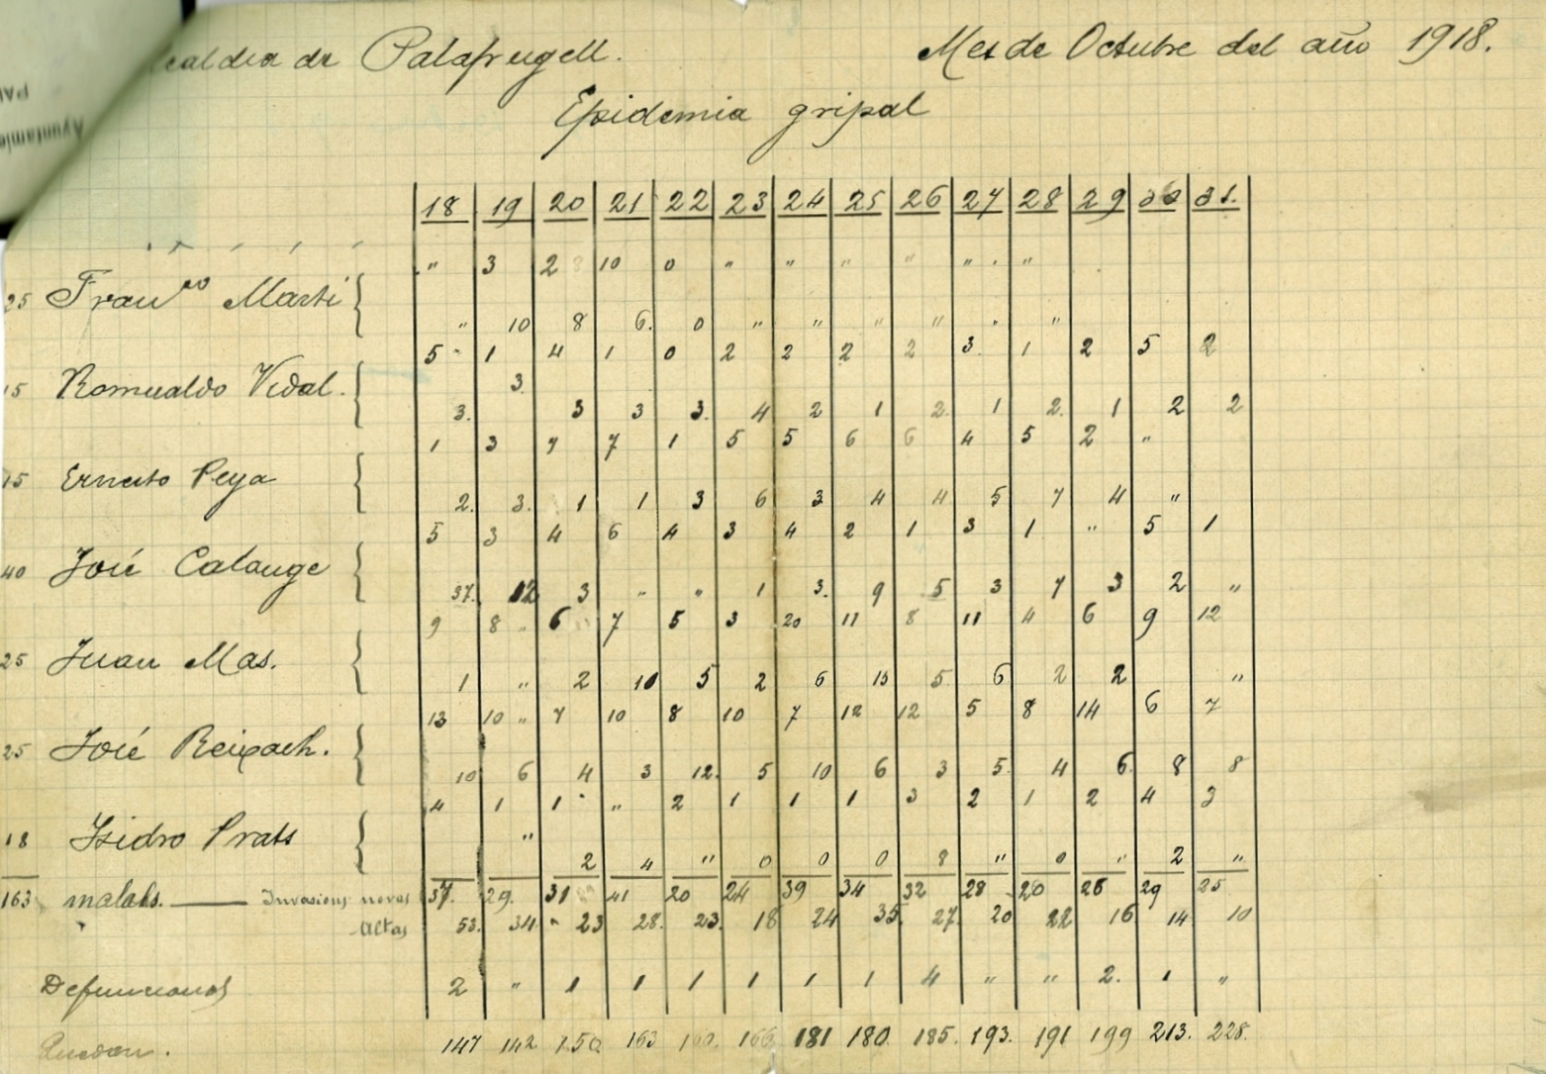 Alcaldia de Palafrugell. Mes de Octubre del año 1918.
Epidemia gripal
18 19 20 21 22 23 24 25 26 27 28 29 30 31.
" 3 2 10 0 " " " " " "
25 Fran.co Marti
" 10 8 6. 0 " " " " " "
5 1 4 1 0 2 2 2 2 3. 1 2 5 2
15 Romualdo Vidal. 3.
3. 3 3 3. 4 2 1 2. 1 2. 1 2 2
1 3 7 7 1 5 5 6 6 4 5 2 "
15 Ernesto Peya
2. 3. 1 1 3 6 3 4 4 5 7 4 "
5 3 4 6 4 3 4 2 1 3 1 " 5 1
40 José Calauge
37. 12 3 " " 1 3. 9 5 3 7 3 2 "
9 8 6 7 5 3 20 11 8 11 4 6 9 12
25 Juan Mas.
1 " 2 10 5 2 6 15 5 6 2 2 "
13 10 7 10 8 10 7 12 12 5 8 14 6 7
25 José Reixach.
10 6 4 3 12. 5 10 6 3 5. 4 6. 8 8
4 1 1 " 2 1 1 1 3 2 1 2 4 3
18 Isidro Prats "
2 4 " 0 0 0 8 " 0 " 2 "
163 malalts. Invasions novas 37. 29. 31 41 20 24 39 34 32 28 20 26 29 25
Altas 53. 34 23 28. 23. 18 24 35. 27. 20 22 16 14 10
Defuncions 2 " 1 1 1 1 1 1 4 " " 2. 1 "
Quedan. 147 142 150 163 160. 166 181 180. 185. 193. 191 199 213. 228.